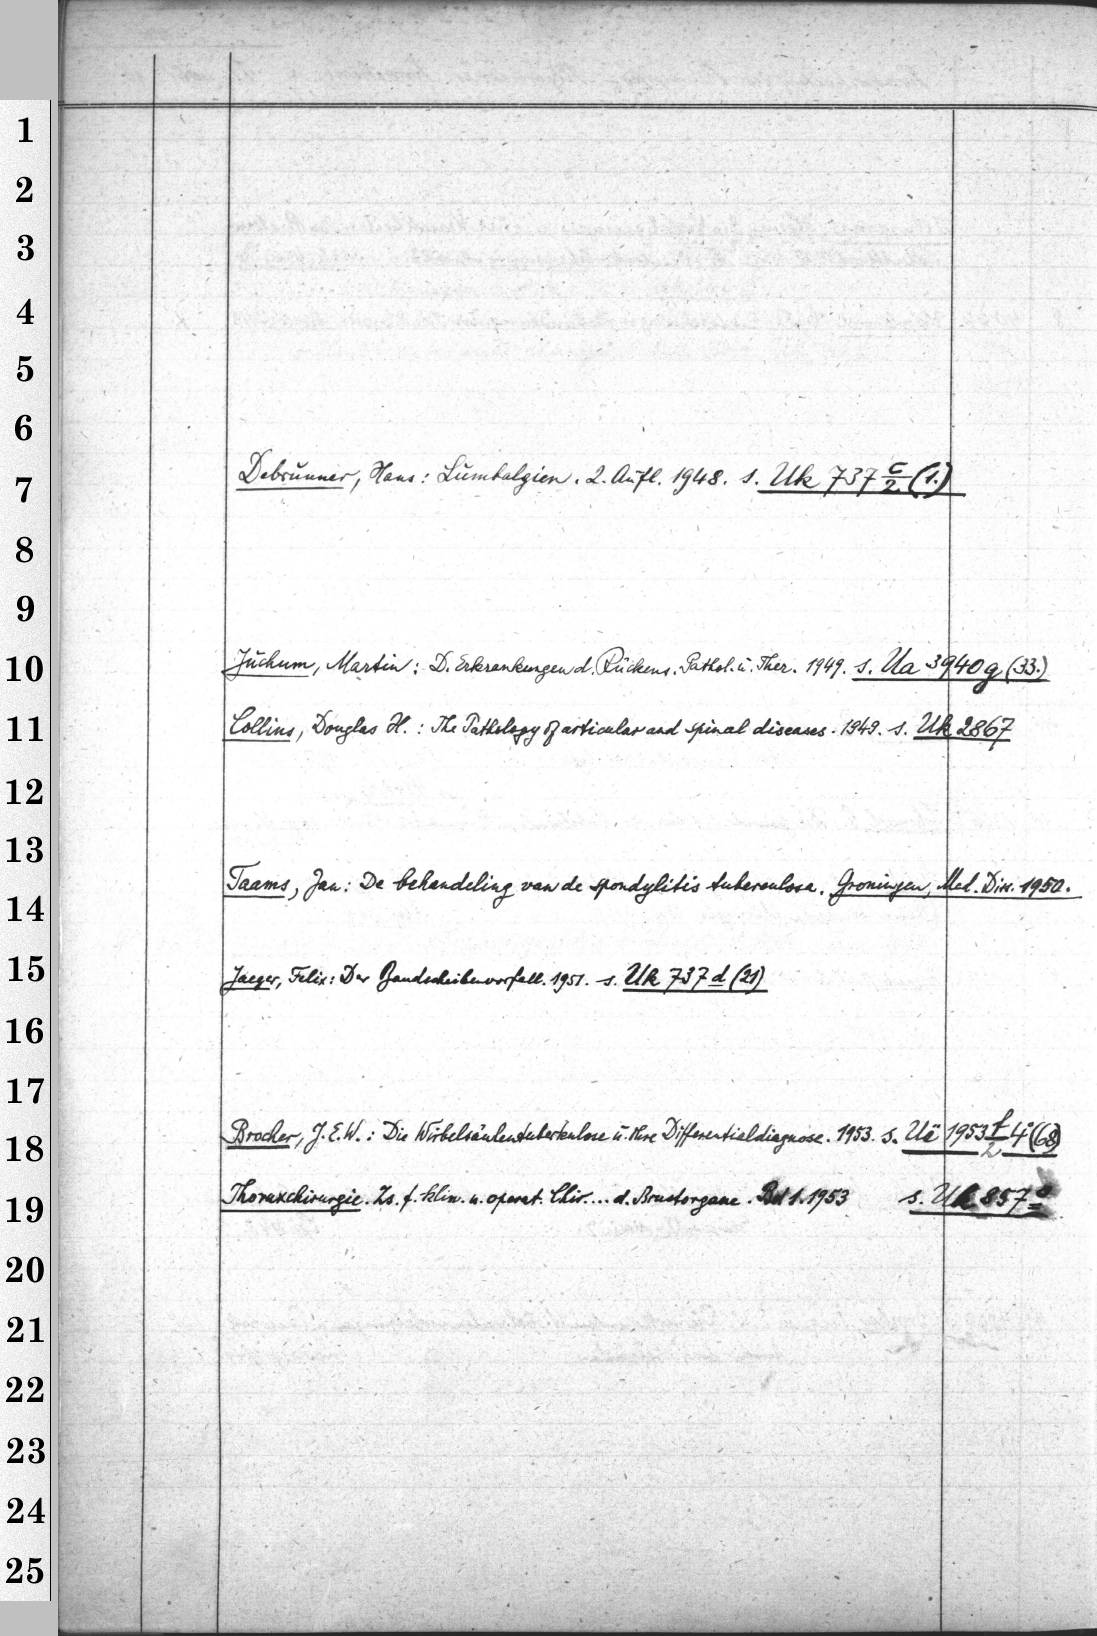 1
2
3
4
5
6
Debrunner, Hans: Lumbalgien. 2. Aufl. 1948. s. Uk 737 c/2 (1.)
7
8
9
Juchum, Martin: D. Erkrankungen d. Rückens. Pathol. u. Ther. 1949. s. Ua 3940 g (33.)
10
Collins, Douglas H.: The Pathology of articular and spinal diseases. 1949. s. Uk 2867
11
12
13
Taams, Jan: De behandeling van de spondylitis tuberculosa. Groningen, Med. Diss. 1950.
14
Jaeger, Felix: Der Bandscheibenvorfall. 1951. s. Uk 737 d (21)
15
16
17
Brocher, J. E. W.: Die Wirbelsäulentuberkulose u. ihre Differentialdiagnose. 1953. s. Uä 1953 f/2 4° (68)
18
Thoraxchirurgie. Zs. f. klin. u. operat. Chir... d. Brustorgane. Bd 1. 1953 s. Uk 857
19
20
21
22
23
24
25